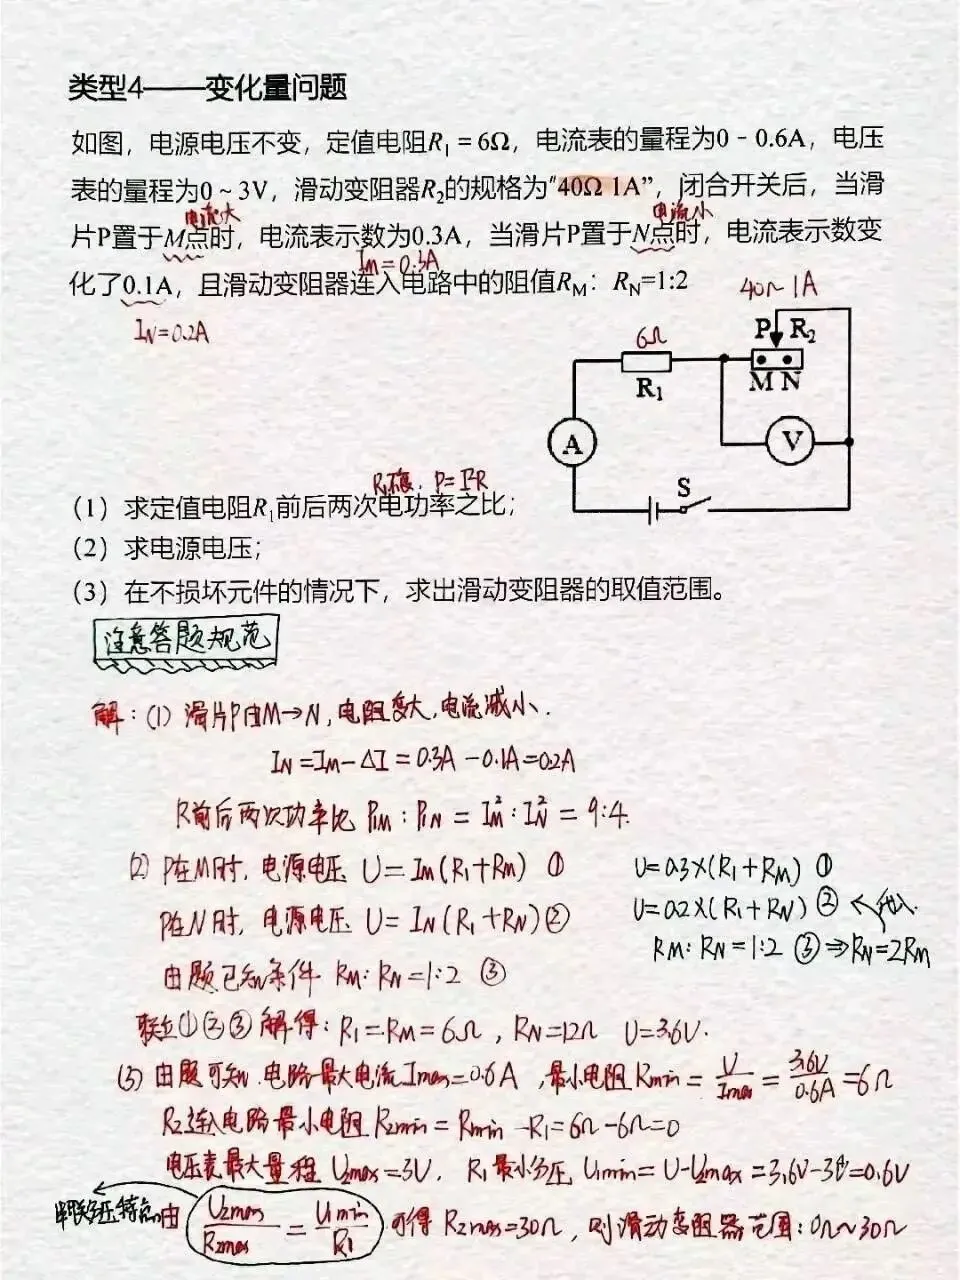 类型4——变化量问题
如图，电源电压不变，定值电阻R₁=6Ω，电流表的量程为0-0.6A，电压
表的量程为0~3V，滑动变阻器R₂的规格为"40Ω 1A"，闭合开关后，当滑
电流大 电流小
片P置于M点时，电流表示数为0.3A，当滑片P置于N点时，电流表示数变
I_M=0.3A
化了0.1A，且滑动变阻器连入电路中的阻值R_M：R_N=1:2
I_N=0.2A
40Ω 1A
P R₂
6Ω
R₁
M N
A
V
S
R₁不变，P=I²R
（1）求定值电阻R₁前后两次电功率之比；
（2）求电源电压；
（3）在不损坏元件的情况下，求出滑动变阻器的取值范围。
注意答题规范
解：(1) 滑片P由M→N，电阻变大，电流减小．
I_N=I_M-ΔI=0.3A-0.1A=0.2A
R前后两次功率比 P₁M：P₁N=I_M²：I_N²=9:4
(2) P在M时，电源电压 U=I_M(R₁+R_M) ①
P在N时，电源电压 U=I_N(R₁+R_N) ②
由题已知条件 R_M：R_N=1:2 ③
联立①②③解得：R₁=R_M=6Ω，R_N=12Ω U=3.6V．
U=0.3×(R₁+R_M) ①
U=0.2×(R₁+R_N) ② ←代入．
R_M：R_N=1:2 ③⇒R_N=2R_M
(3) 由题可知．电路最大电流Imax=0.6A，最小电阻Rmin=U/Imax=3.6V/0.6A=6Ω
R₂连入电路最小电阻R₂min=Rmin-R₁=6Ω-6Ω=0
电压表最大量程 U₂max=3V，R₁最小分压 U₁min=U-U₂max=3.6V-3V=0.6V
串联分压特点 由 U₂max/R₂max=U₁min/R₁ 可得 R₂max=30Ω，则滑动变阻器范围：0Ω~30Ω